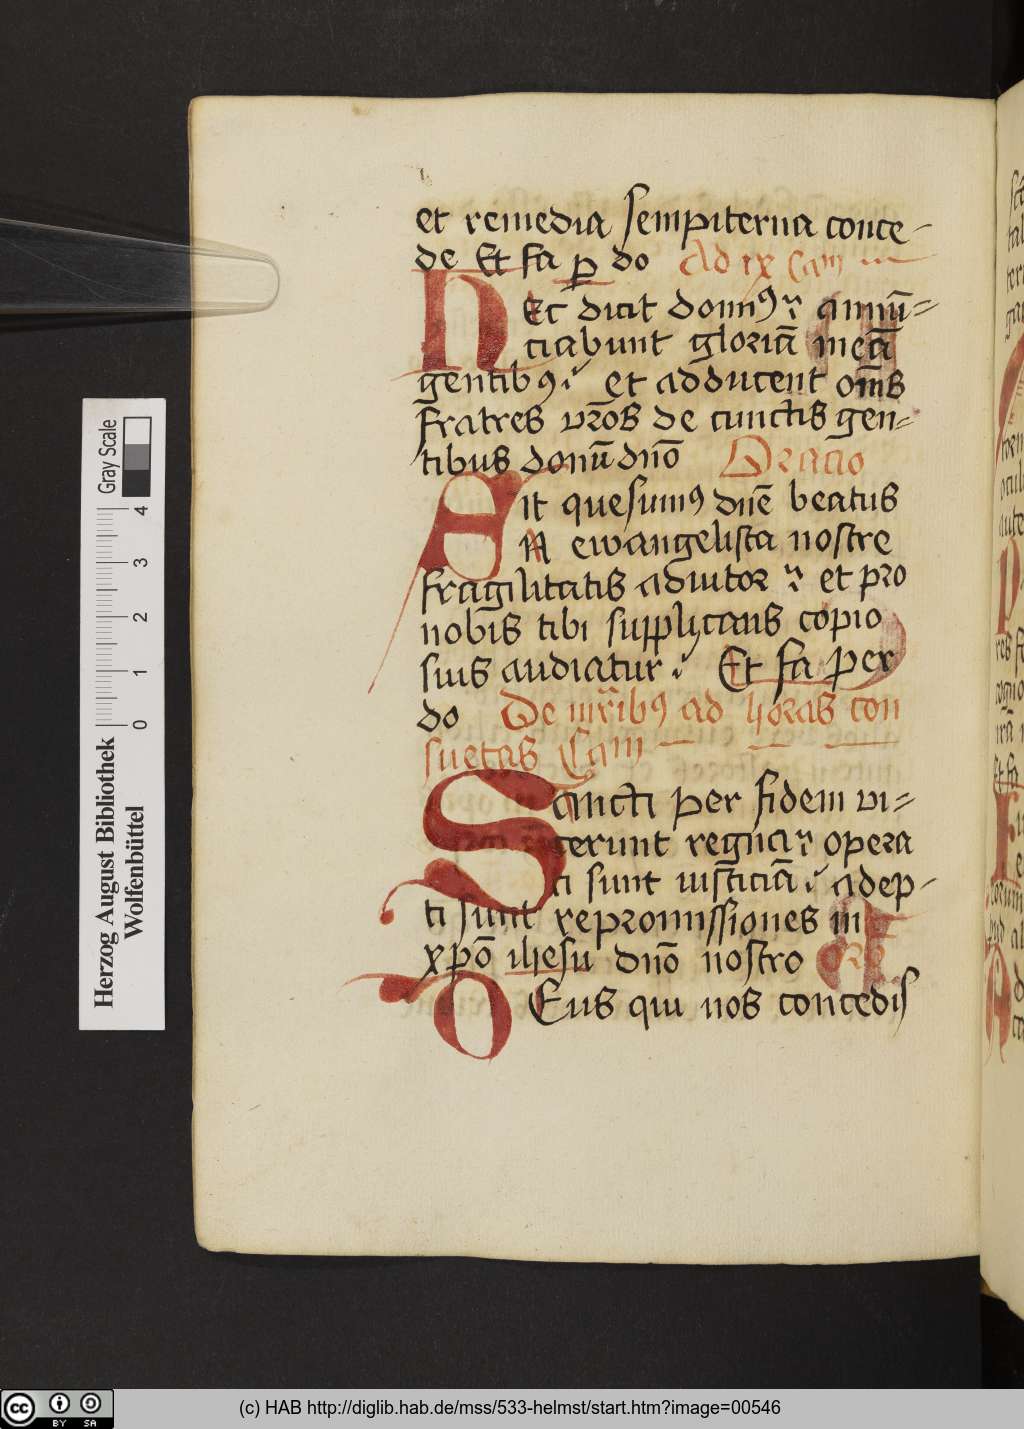 et remedia sempiterna conce-
de Et fa ꝑ do Ad ix Cam
Hec dicit dominꝰ annū=
ciabunt gloriā meā
gentibꝰ et adducent om̄s
fratres vr̄os de cunctis gen=
tibus donū dn̄o Oracio
Sit quesumꝰ dn̄e beatus
N ewangelista nostre
fragilitatis adiutor et pro
nobis tibi supplicans copio
sius audiatur Et fa per
do De mr̄ibꝰ ad horas con
suetas Cam
Sancti per fidem vi=
cerunt regna opera
ti sunt iusticiā adep-
ti sunt repromissiones in
xpō ihesu dn̄o nostro Orō
Deus qui nos concedis
Herzog August Bibliothek
Wolfenbüttel
0 1 2 3 4
Gray Scale
cc BY SA
(c) HAB http://diglib.hab.de/mss/533-helmst/start.htm?image=00546